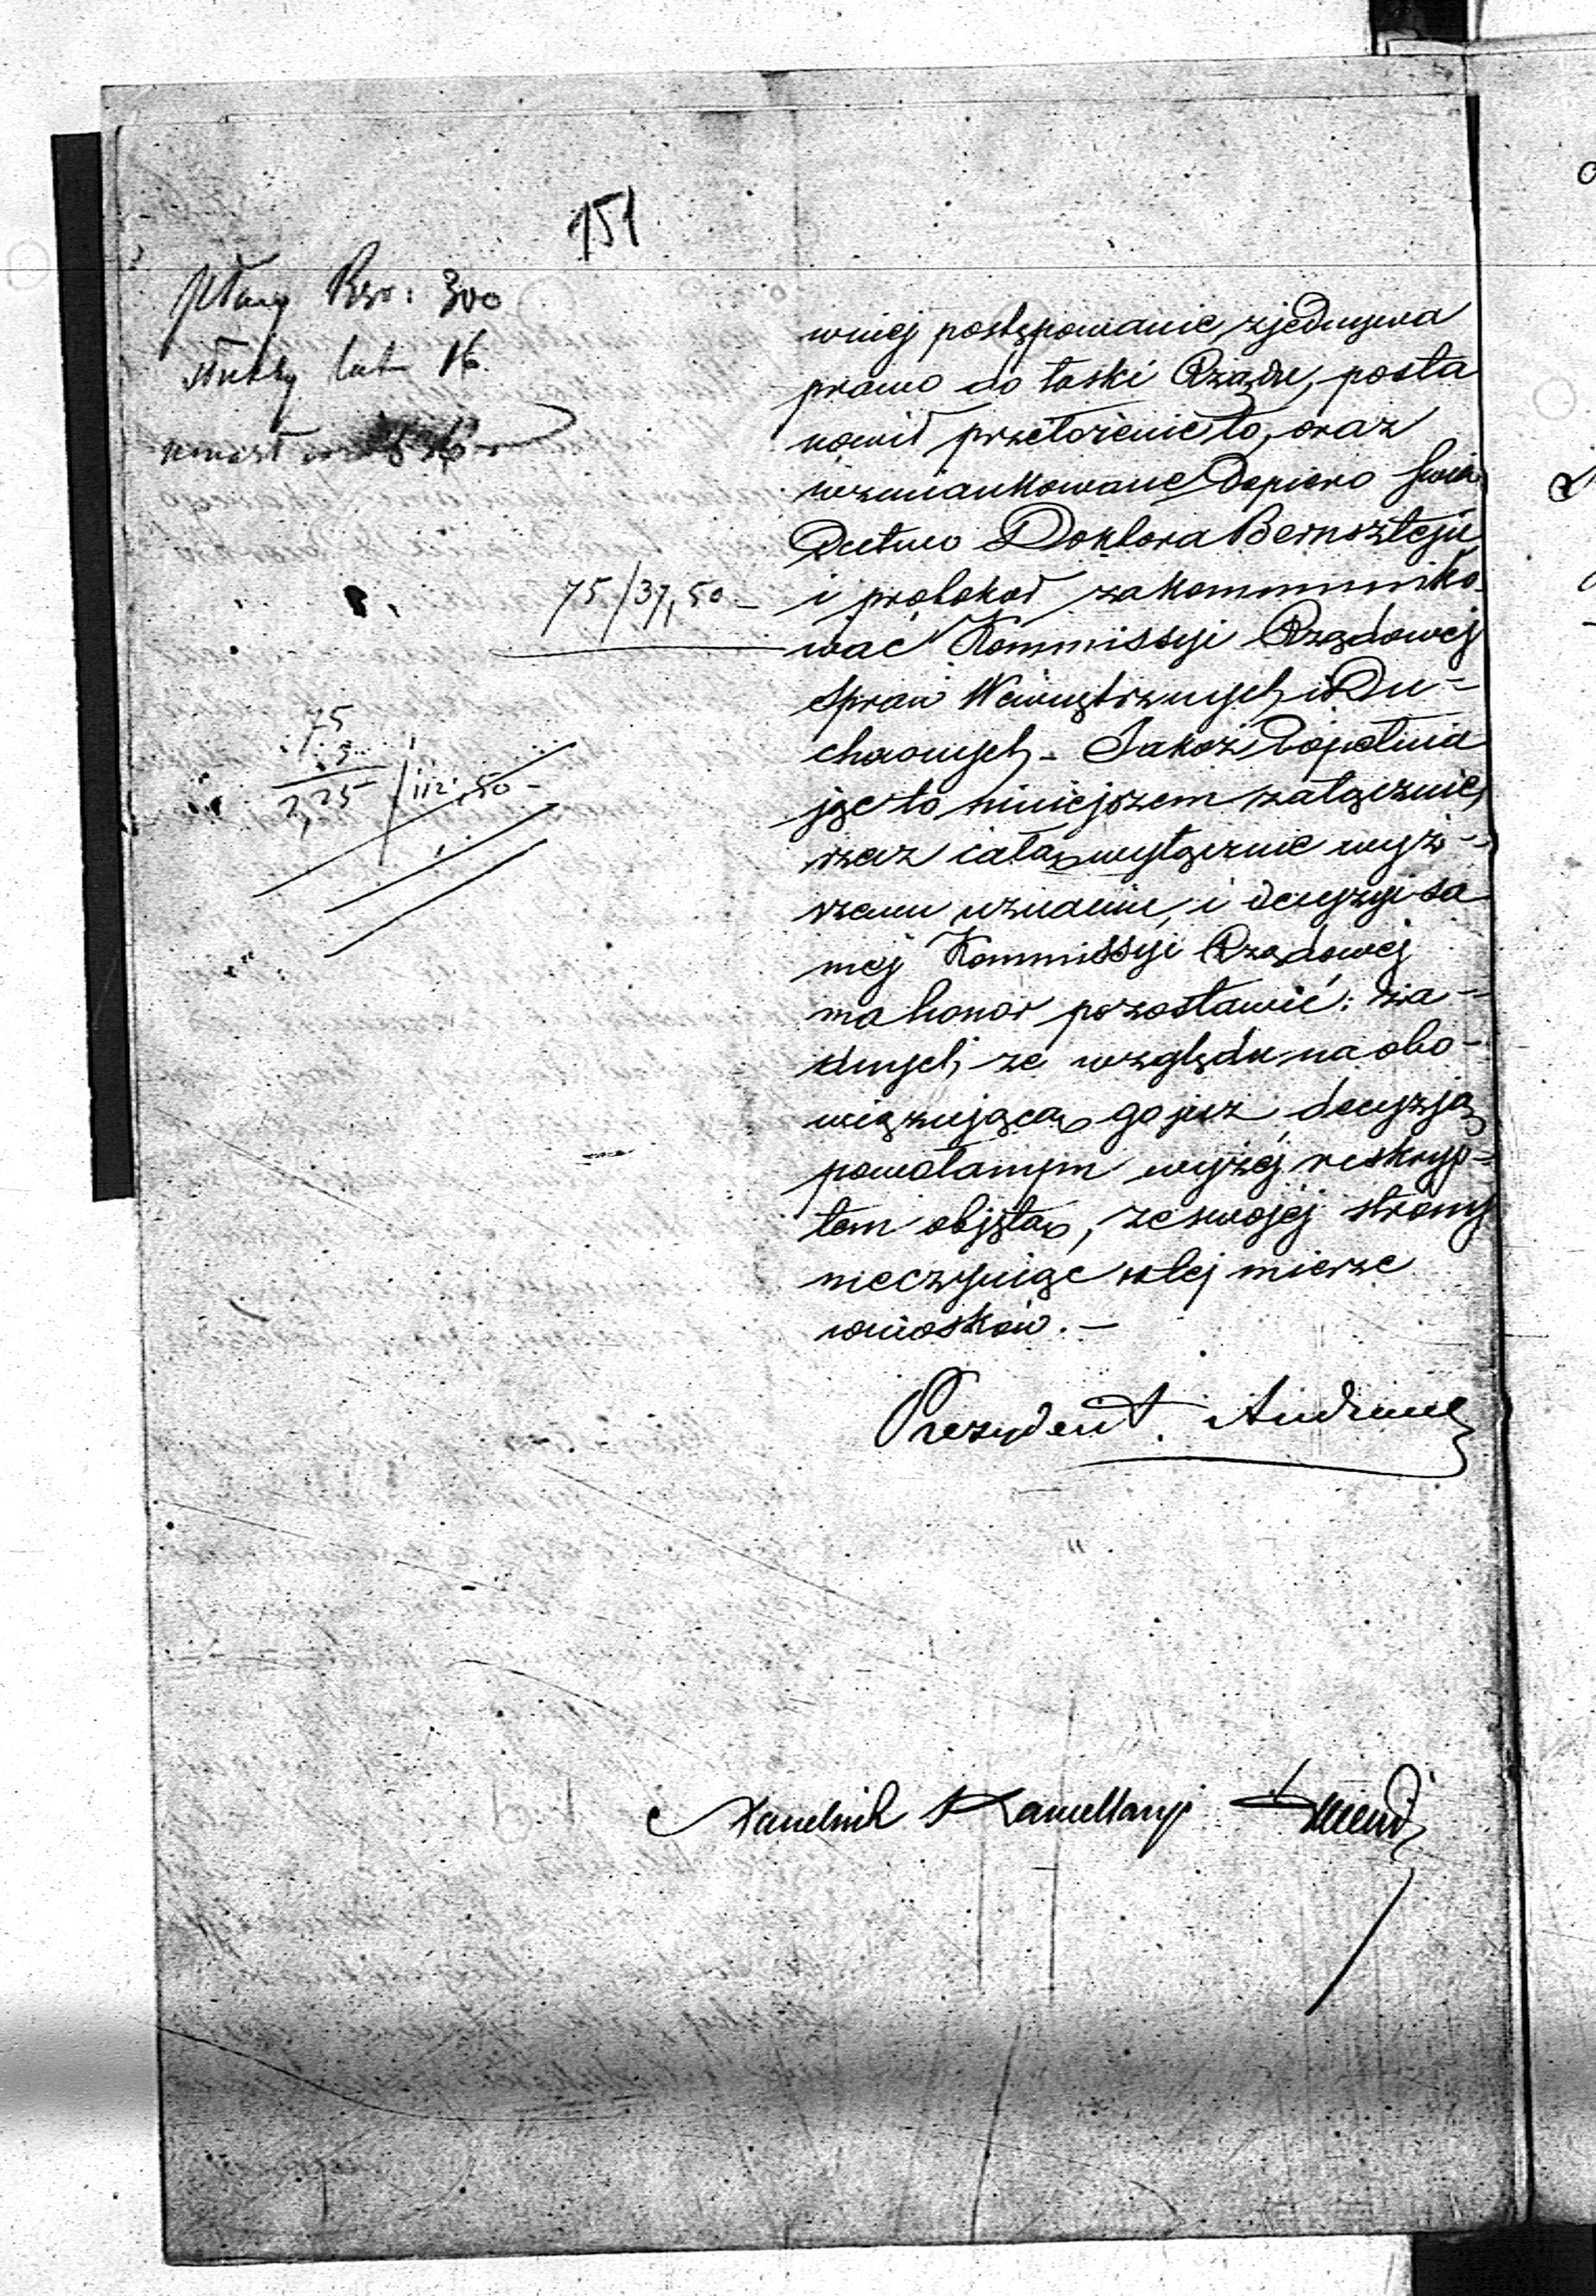 151
płacy Rsr: 300
służby lat 16
75/37,50 -
75
3
2,25 / 112,50 -
wniej postępowanie, zjednywa
prawo do łaski Rządu, posta
nowił przełożenie to, oraz
wzmiankowane dopiero świa
dectwo Doktora Bernsztejn
i protokoł zakommuniko
wać Kommissyi Rządowej
Spraw Wewnętrznych i Du-
chownych - Jakoż dopełnia
jąc to niniejszem załącznie,
rzecz całą wyłącznie wyż-
szemu uznaniu, i decyzyi sa
mej Kommissyi Rządowej
ma honor pozostawić: ża-
dnych, ze względu na obo-
wiązującą go już decyzją
powołanym wyżej reskryp-
tem objętą, ze swojej strony
nieczyniąc w tej mierze
wniosków. -
Prezydent
Naczelnik Kancellaryi